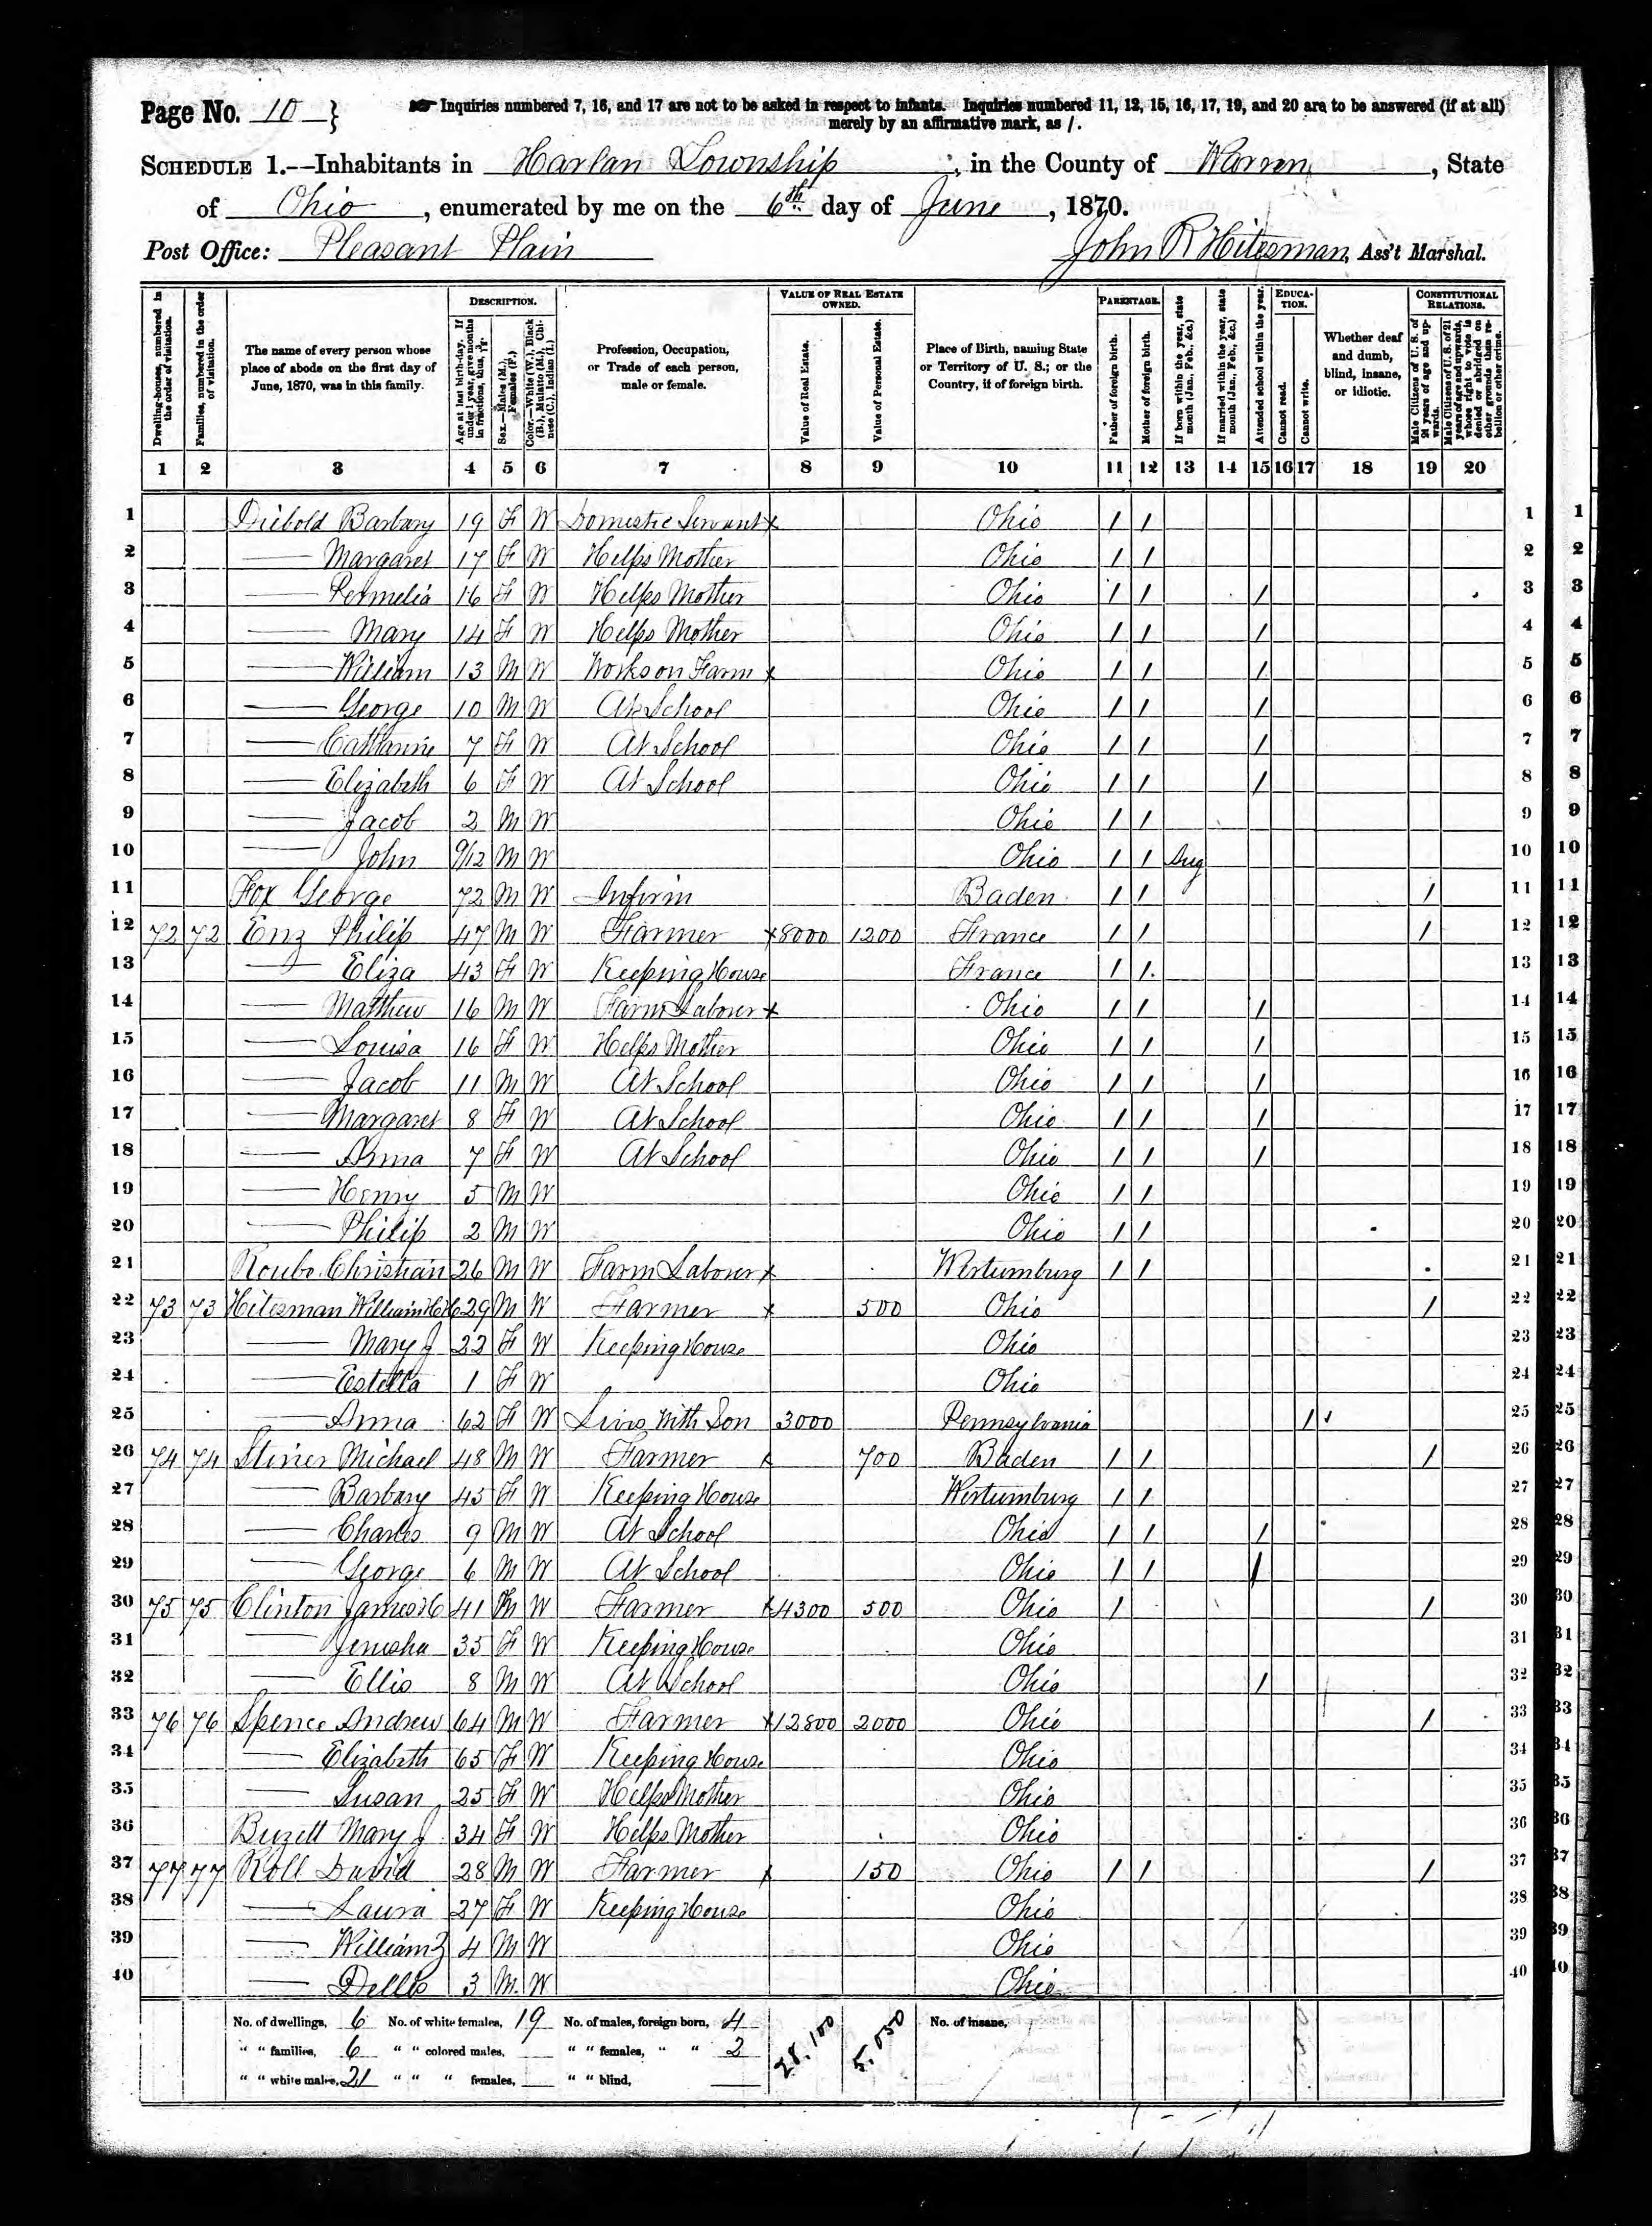 Page No. 10 }
Inquiries numbered 7, 16, and 17 are not to be asked in respect to infants. Inquiries numbered 11, 12, 15, 16, 17, 19, and 20 are to be answered (if at all)
merely by an affirmative mark, as /.
SCHEDULE 1.—Inhabitants in Harlan Township, in the County of Warren, State
of Ohio, enumerated by me on the 6th. day of June, 1870.
Post Office: Pleasant Plain John R Hitesman, Ass't Marshal.
Dwelling-houses, numbered in the order of visitation.
Families, numbered in the order of visitation.
The name of every person whose place of abode on the first day of June, 1870, was in this family.
DESCRIPTION.
Age at last birth-day. If under 1 year, give months in fractions, thus, 3/12.
Sex.—Males (M.), Females (F.)
Color.—White (W.), Black (B.), Mulatto (M.), Chinese (C.), Indian (I.)
Profession, Occupation, or Trade of each person, male or female.
VALUE OF REAL ESTATE OWNED.
Value of Real Estate.
Value of Personal Estate.
Place of Birth, naming State or Territory of U. S.; or the Country, if of foreign birth.
PARENTAGE.
Father of foreign birth.
Mother of foreign birth.
If born within the year, state month (Jan., Feb., &c.)
If married within the year, state month (Jan., Feb., &c.)
Attended school within the year.
EDUCATION.
Cannot read.
Cannot write.
Whether deaf and dumb, blind, insane, or idiotic.
CONSTITUTIONAL RELATIONS.
Male Citizens of U. S. of 21 years of age and upwards.
Male Citizens of U. S. of 21 years of age and upwards, whose right to vote is denied or abridged on other grounds than rebellion or other crime.
1 2 3 4 5 6 7 8 9 10 11 12 13 14 15 16 17 18 19 20
1 Diebold Barbary 19 F W Domestic Servant x Ohio / / 1 1
2 — Margaret 17 F W Helps Mother Ohio / / 2 2
3 — Permelia 16 F W Helps Mother Ohio / / / 3 3
4 — Mary 14 F W Helps Mother Ohio / / / 4 4
5 — William 13 M W Works on Farm x Ohio / / / 5 5
6 — George 10 M W At School Ohio / / / 6 6
7 — Catharine 7 F W At School Ohio / / / 7 7
8 — Elizabeth 6 F W At School Ohio / / / 8 8
9 — Jacob 2 M W Ohio / / 9 9
10 — John 9/12 M W Ohio / / Aug 10 10
11 Fox George 72 M W Infirm Baden / / / 11 11
12 72 72 Enz Philip 47 M W Farmer x 8000 1200 France / / / 12 12
13 — Eliza 43 F W Keeping House France / / 13 13
14 — Matthew 16 M W Farm Laborer x Ohio / / / 14 14
15 — Louisa 16 F W Helps Mother Ohio / / / 15 15
16 — Jacob 11 M W At School Ohio / / / 16 16
17 — Margaret 8 F W At School Ohio / / / 17 17
18 — Anna 7 F W At School Ohio / / / 18 18
19 — Henry 5 M W Ohio / / 19 19
20 — Philip 2 M W Ohio / / 20 20
21 Christian 26 M W Farm Laborer x Wirtumburg / / 21 21
22 73 73 Hitesman William 29 M W Farmer x 500 Ohio / 22 22
23 — Mary J 22 F W Keeping House Ohio 23 23
24 — Estella 1 F W Ohio 24 24
25 — Anna 62 F W Lives With Son 3000 Pennsylvania / 25 25
26 74 74 Stiner Michael 48 M W Farmer x 700 Baden / / / 26 26
27 — Barbary 45 F W Keeping House Wirtumburg / / 27 27
28 — Charles 9 M W At School Ohio / / / 28 28
29 — George 6 M W At School Ohio / / / 29 29
30 75 75 Clinton James H 41 M W Farmer x 4300 500 Ohio / / 30 30
31 — Jerusha 35 F W Keeping House Ohio 31 31
32 — Ellis 8 M W At School Ohio / 32 32
33 76 76 Spence Andrew 64 M W Farmer x 12800 2000 Ohio / 33 33
34 — Elizabeth 65 F W Keeping House Ohio 34 34
35 — Susan 25 F W Helps Mother Ohio 35 35
36 Buzett Mary J 34 F W Helps Mother Ohio 36 36
37 77 77 Roll David 28 M W Farmer x 150 Ohio / / / 37 37
38 — Laura 27 F W Keeping House Ohio 38 38
39 — William 4 M W Ohio 39 39
40 — 3 M W Ohio 40 40
No. of dwellings, 6 No. of white females, 19 No. of males, foreign born, 4 28,100 5,050 No. of insane,
" " families, 6 " " colored males, " " females, " " 2
" " white males, 21 " " " females, " " blind,